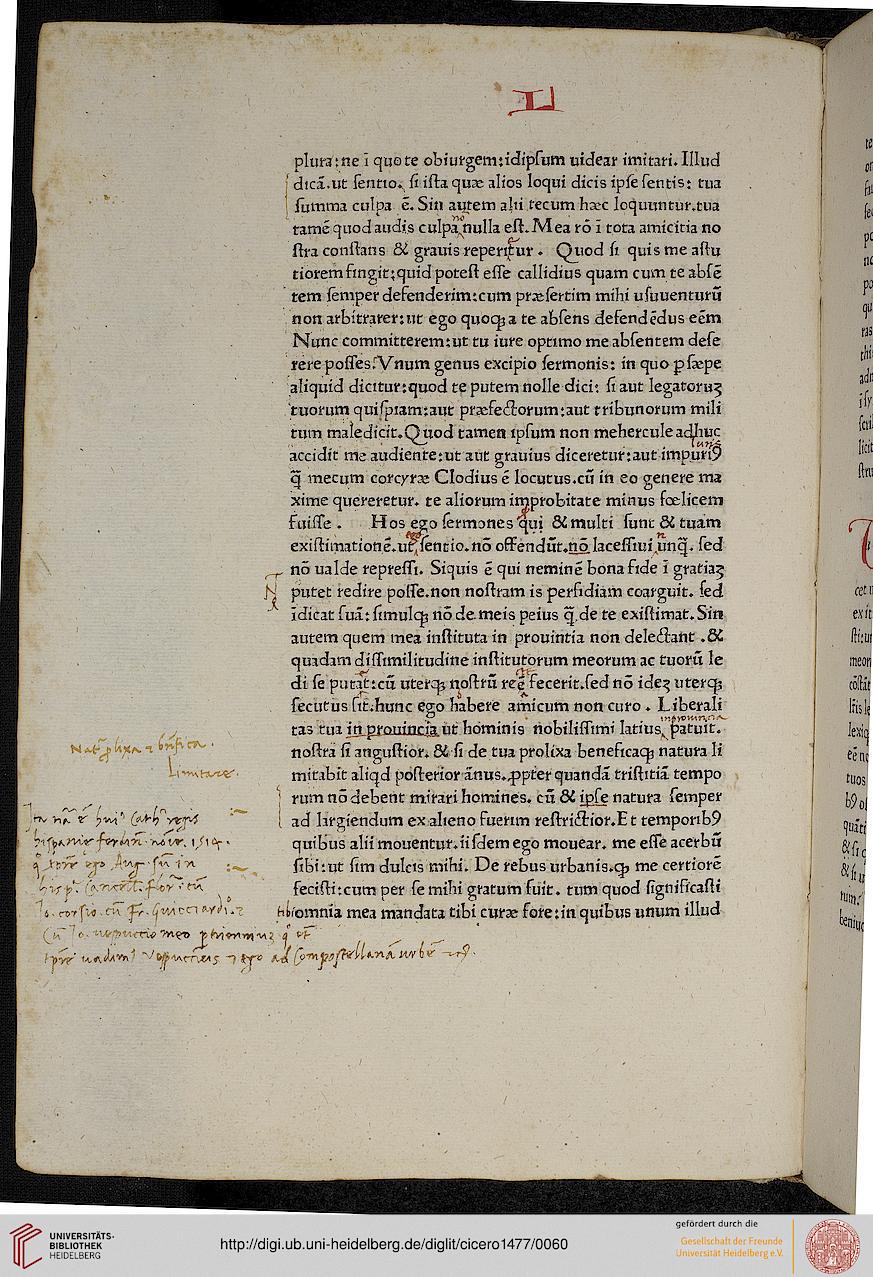 L
plura: ne ī quo te obiurgem: idipsum uidear imitari. Illud
dicā. ut sentio. si ista quæ alios loqui dicis ipse sentis: tua
summa culpa ē. Sin autem alii tecum hæc loquuntur. tua
tamē quod audis culpa nō nulla est. Mea rō ī tota amicitia no
stra constans & grauis reperitur. Quod si quis me astu
tiorem fingit: quid potest esse callidius quam cum te absē
tem semper defenderim: cum præsertim mihi usuuenturū
non arbitrarer: ut ego quoqꝫ a te absens defendēdus eēm
Nunc committerem: ut tu iure optimo me absentem dese
rere posses. Vnum genus excipio sermonis: in quo ꝑ sæpe
aliquid dicitur: quod te putem nolle dici: si aut legatoruꝫ
tuorum quispiam: aut præfectorum: aut tribunorum mili
tum maledicit. Quod tamen ipsum non mehercule adhuc
accidit me audiente: ut aut grauius diceretur: aut impuriꝰ
q̄ mecum corcyræ Clodius ē locutus. cū in eo genere ma
xime quereretur. te aliorum improbitate minus fœlicem
fuisse. Hos ego sermones qui & multi sunt & tuam
existimationē. ut ego sentio. nō offendūt. nō lacessiui unq̄. sed
nō ualde repressi. Siquis ē qui neminē bona fide ī gratiaꝫ
putet redire posse. non nostram is perfidiam coarguit. sed
īdicat suā: simulqꝫ nō de meis peius q̄. de te existimat. Sin
autem quem mea instituta in prouintia non delectant. &
quadam dissimilitudine institutorum meorum ac tuorū le
di se putat: cū uterqꝫ nostrū recte fecerit. sed nō ideꝫ uterqꝫ
secutus sit. hunc ego habere amicum non curo. Liberali
tas tua in prouincia ut hominis nobilissimi latius in prouincia patuit.
nostra si angustior. & si de tua prolixa beneficaqꝫ natura li
mitabit aliqd posterior ānus. ꝓpter quandā tristitiā tempo
rum nō debent mirari homines. cū & ipse natura semper
ad largiendum ex alieno fuerim restrictior. Et temporibꝰ
quibus alii mouentur. iisdem ego mouear. me esse acerbū
sibi: ut sim dulcis mihi. De rebus urbanis. qꝫ me certiorē
fecisti: cum per se mihi gratum fuit. tum quod significasti
tibi omnia mea mandata tibi curæ fore: in quibus unum illud
Limitare.
hispanie ferdin. 1514.
ego Aug. in
Jo. corsio. cū Fr. Guicciardi
ego ad Compostellanā urbē
UNIVERSITÄTS-
BIBLIOTHEK
HEIDELBERG
http://digi.ub.uni-heidelberg.de/diglit/cicero1477/0060
gefördert durch die
Gesellschaft der Freunde
Universität Heidelberg e.V.